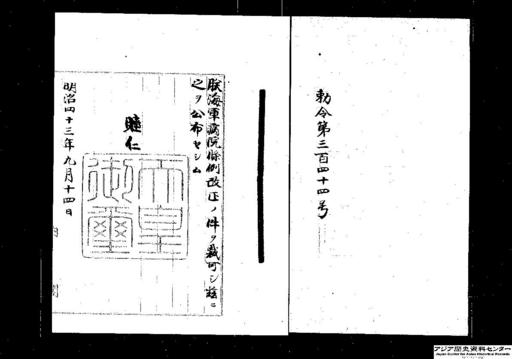 勅令第三百四十四号
朕海軍病院條例改正ノ件ヲ裁可シ茲ニ
之ヲ公布セシム
睦仁
天皇
御璽
明治四十三年九月十四日
アジア歴史資料センター
Japan Center for Asian Historical Records